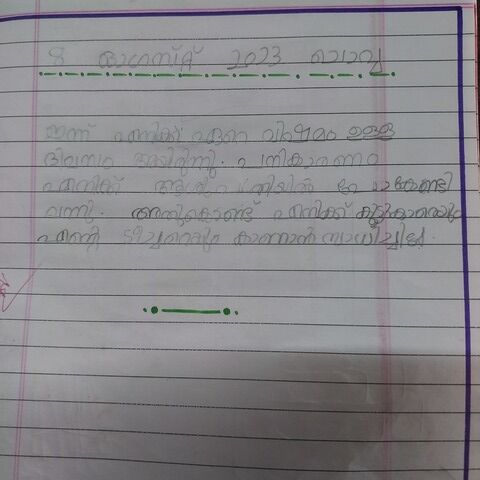 8 ഓഗസ്റ്റ് 2023 ചൊവ്വ
ഇന്ന് എനിക്ക് ഏറെ വിഷമം ഉള്ള
ദിവസം ആയിരുന്നു. പനികാരണം
എനിക്ക് ആശുപത്രിയിൽ പോകേണ്ടി
വന്നു. അതുകൊണ്ട് എനിക്ക് കൂട്ടുകാരെയും
എന്റെ ടീച്ചറെയും കാണാൻ സാധിച്ചില്ല.